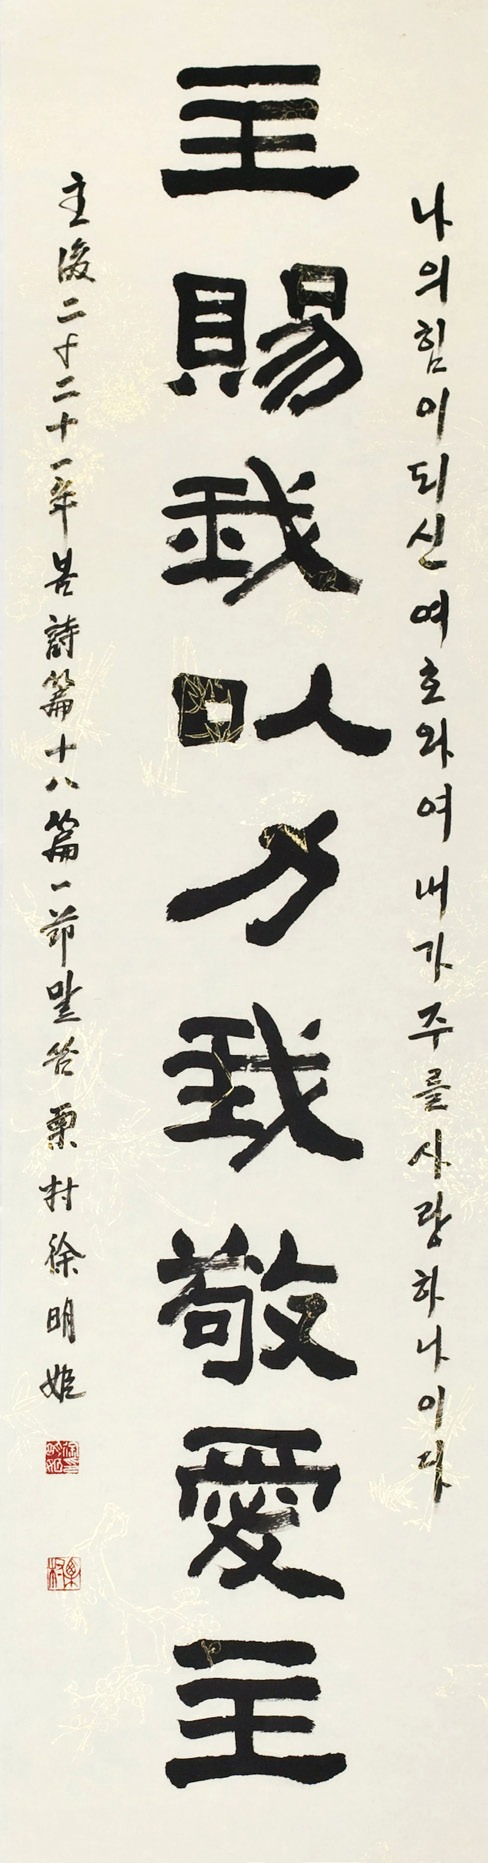 나의힘이되신여호와여내가주를사랑하나이다
主賜我以力我敬愛主
主後二千二十一年 詩篇十八篇一節말씀 栗村徐明姬
栗村